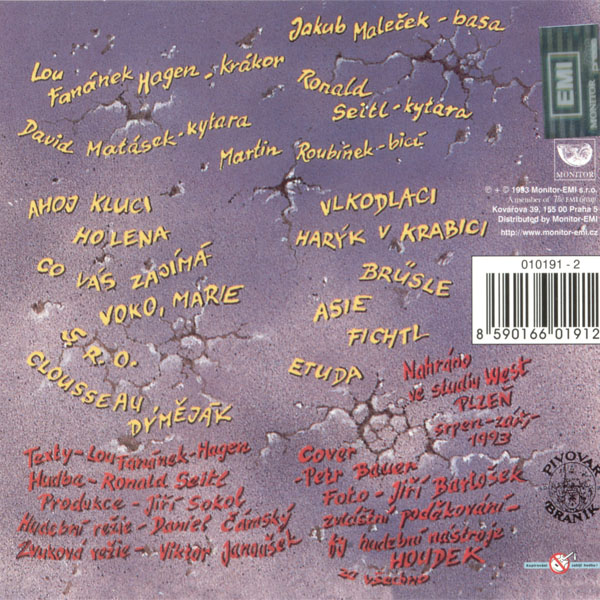 Jakub Maleček - basa
Lou
Fanánek Hagen - krákor
Ronald
Seitl - kytara
David Matásek - kytara
Martin Roubínek - bicí
AHOJ KLUCI
HOLENA
CO VÁS ZAJÍMÁ
VOKO, MARIE
S.R.O.
CLOUSSEAU
DÝMĚJÁK
VLKODLACI
HARÝK V KRABICI
BRŮSLE
ASIE
FICHTL
ETUDA
Nahráno
ve studiu West
PLZEŇ
srpen - září
1993
Texty - Lou Fanánek - Hagen
Hudba - Ronald Seitl
Produkce - Jiří Sokol
Hudební režie - Daniel Čámský
Zvuková režie - Viktor Janoušek
Cover
- Petr Bauer
Foto - Jiří Bartošek
zvláštní poděkování -
fy hudební nástroje
HOUDEK
za všechno
EMI
MONITOR
MONITOR
℗ + © 1993 Monitor-EMI s.r.o.
A member of The EMI Group
Kovářova 39, 155 00 Praha 5
Distributed by Monitor-EMI
http://www.monitor-emi.cz
010191 - 2
8 590166 01912
PIVOVAR
BRANÍK